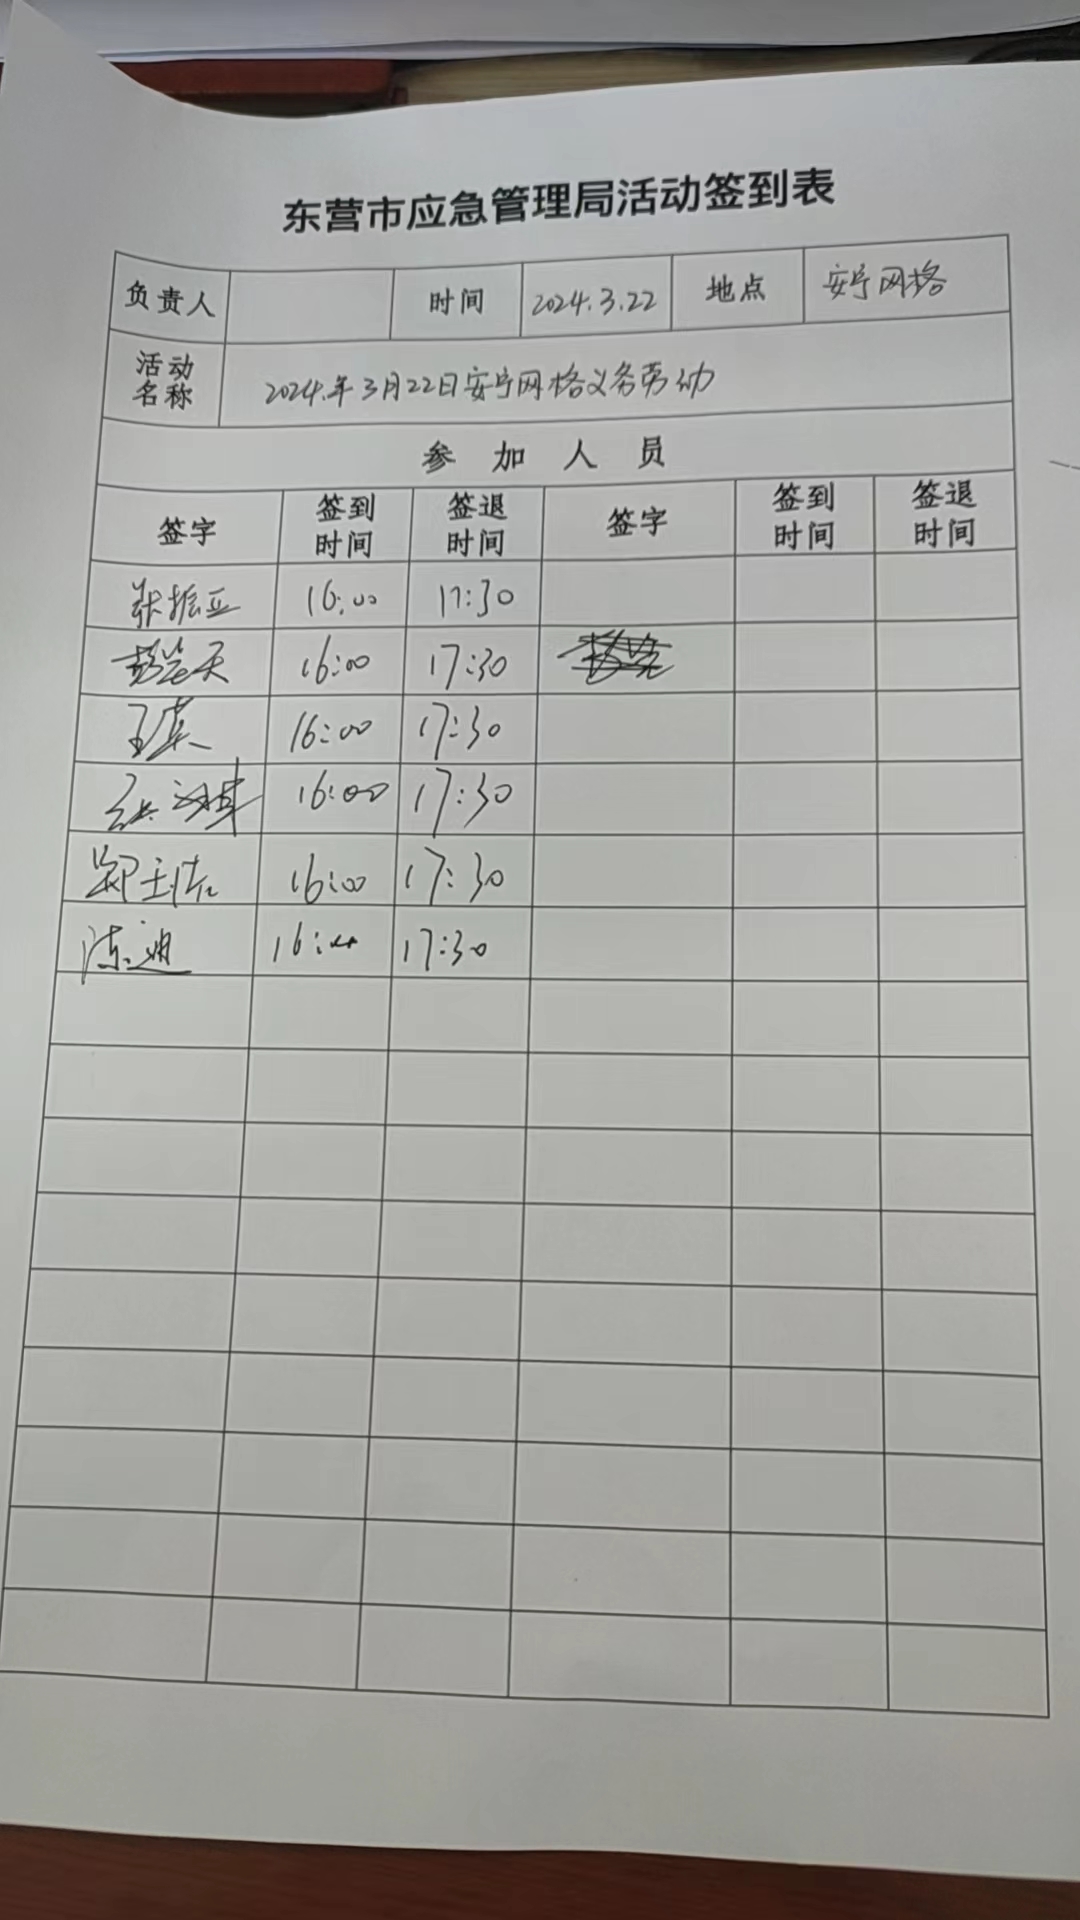 东营市应急管理局活动签到表
负责人 时间 2024.3.22 地点 安宁网格
活动名称 2024年3月22日安宁网格义务劳动
参加人员
签字 签到时间 签退时间 签字 签到时间 签退时间
张振亚 16:00 17:30
16:00 17:30
16:00 17:30
16:00 17:30
16:00 17:30
陈迪 16:00 17:30